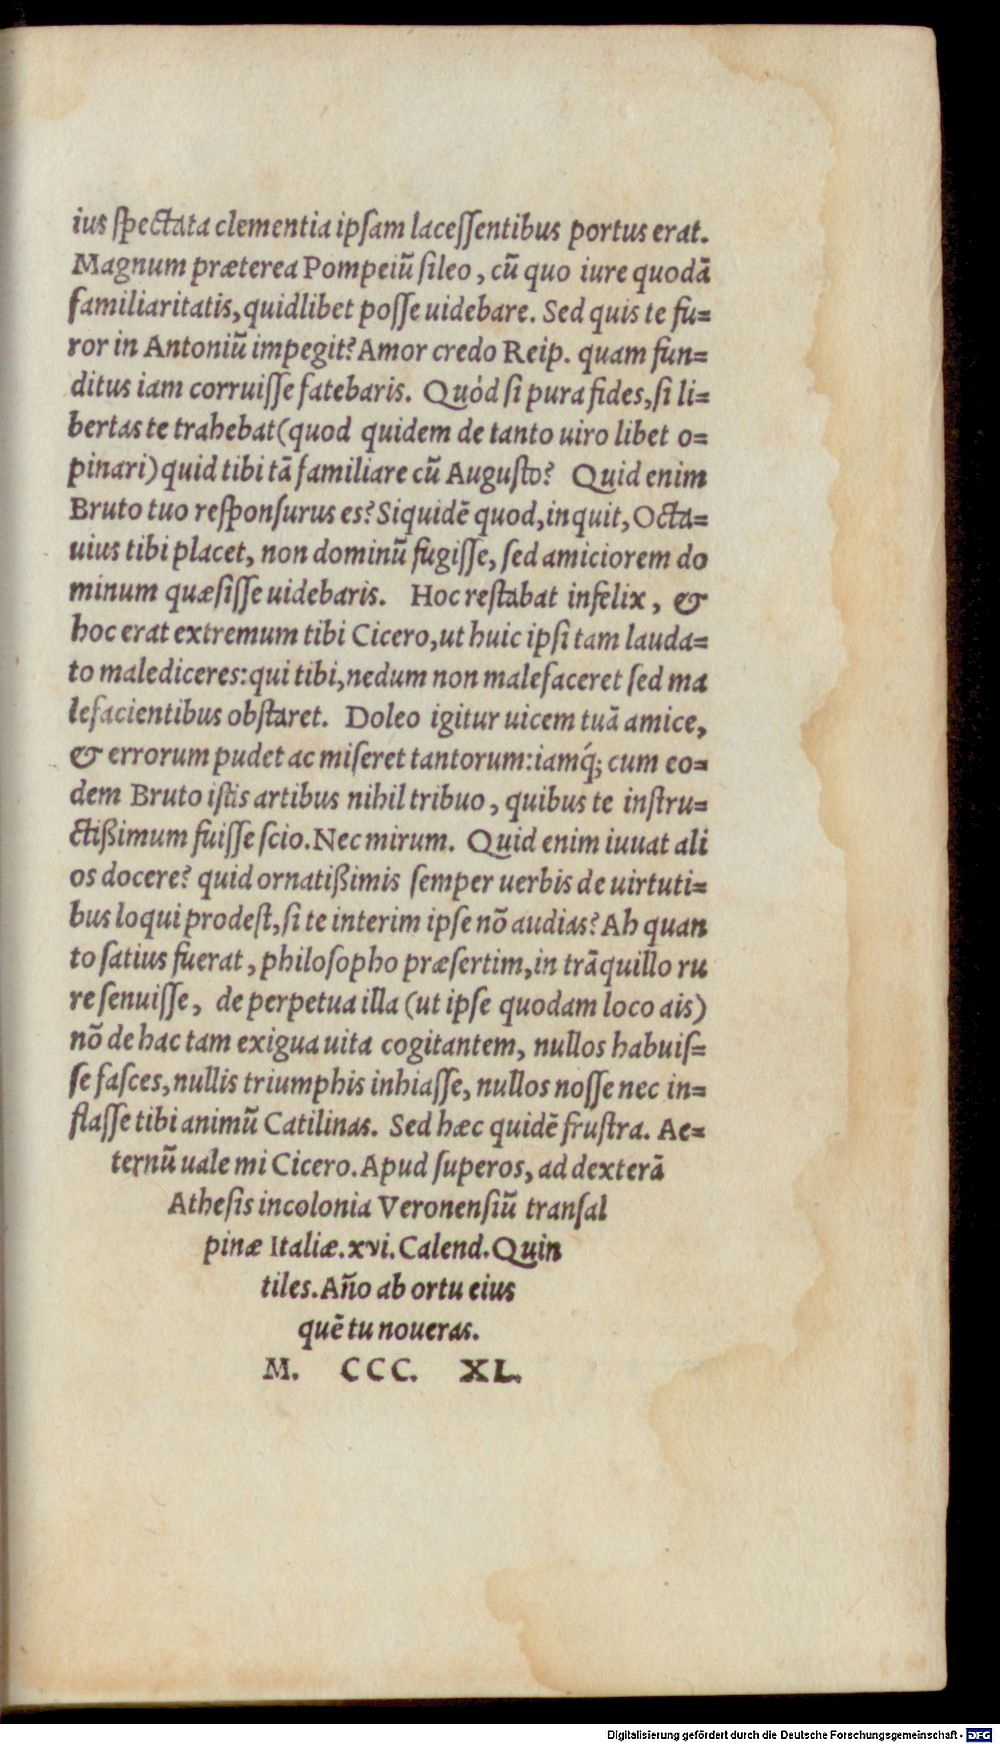 ius spectata clementia ipsam lacessentibus portus erat.
Magnum præterea Pompeiũ sileo, cũ quo iure quodã
familiaritatis, quidlibet posse uidebare. Sed quis te fu=
ror in Antoniũ impegit? Amor credo Reip. quam fun=
ditus iam corruisse fatebaris. Quòd si pura fides, si li=
bertas te trahebat (quod quidem de tanto uiro libet o=
pinari) quid tibi tã familiare cũ Augusto? Quid enim
Bruto tuo responsurus es? Siquidẽ quod, inquit, Octa=
uius tibi placet, non dominũ fugisse, sed amiciorem do
minum quæsisse uidebaris. Hoc restabat infelix, &
hoc erat extremum tibi Cicero, ut huic ipsi tam lauda=
to malediceres: qui tibi, nedum non malefaceret sed ma
lefacientibus obstaret. Doleo igitur uicem tuã amice,
& errorum pudet ac miseret tantorum: iamq́; cum eo=
dem Bruto istis artibus nihil tribuo, quibus te instru=
ctißimum fuisse scio. Nec mirum. Quid enim iuuat ali
os docere? quid ornatißimis semper uerbis de uirtuti=
bus loqui prodest, si te interim ipse nõ audias? Ah quan
to satius fuerat, philosopho præsertim, in trãquillo ru
re senuisse, de perpetua illa (ut ipse quodam loco ais)
nõ de hac tam exigua uita cogitantem, nullos habuis=
se fasces, nullis triumphis inhiasse, nullos nosse nec in=
flasse tibi animũ Catilinas. Sed hæc quidẽ frustra. Ae=
ternũ uale mi Cicero. Apud superos, ad dexterã
Athesis in colonia Veronensiũ transal
pinæ Italiæ. xvi. Calend. Quin
tiles. Añо ab ortu eius
quẽ tu noueras.
M. CCC. XL.
Digitalisierung gefördert durch die Deutsche Forschungsgemeinschaft - DFG